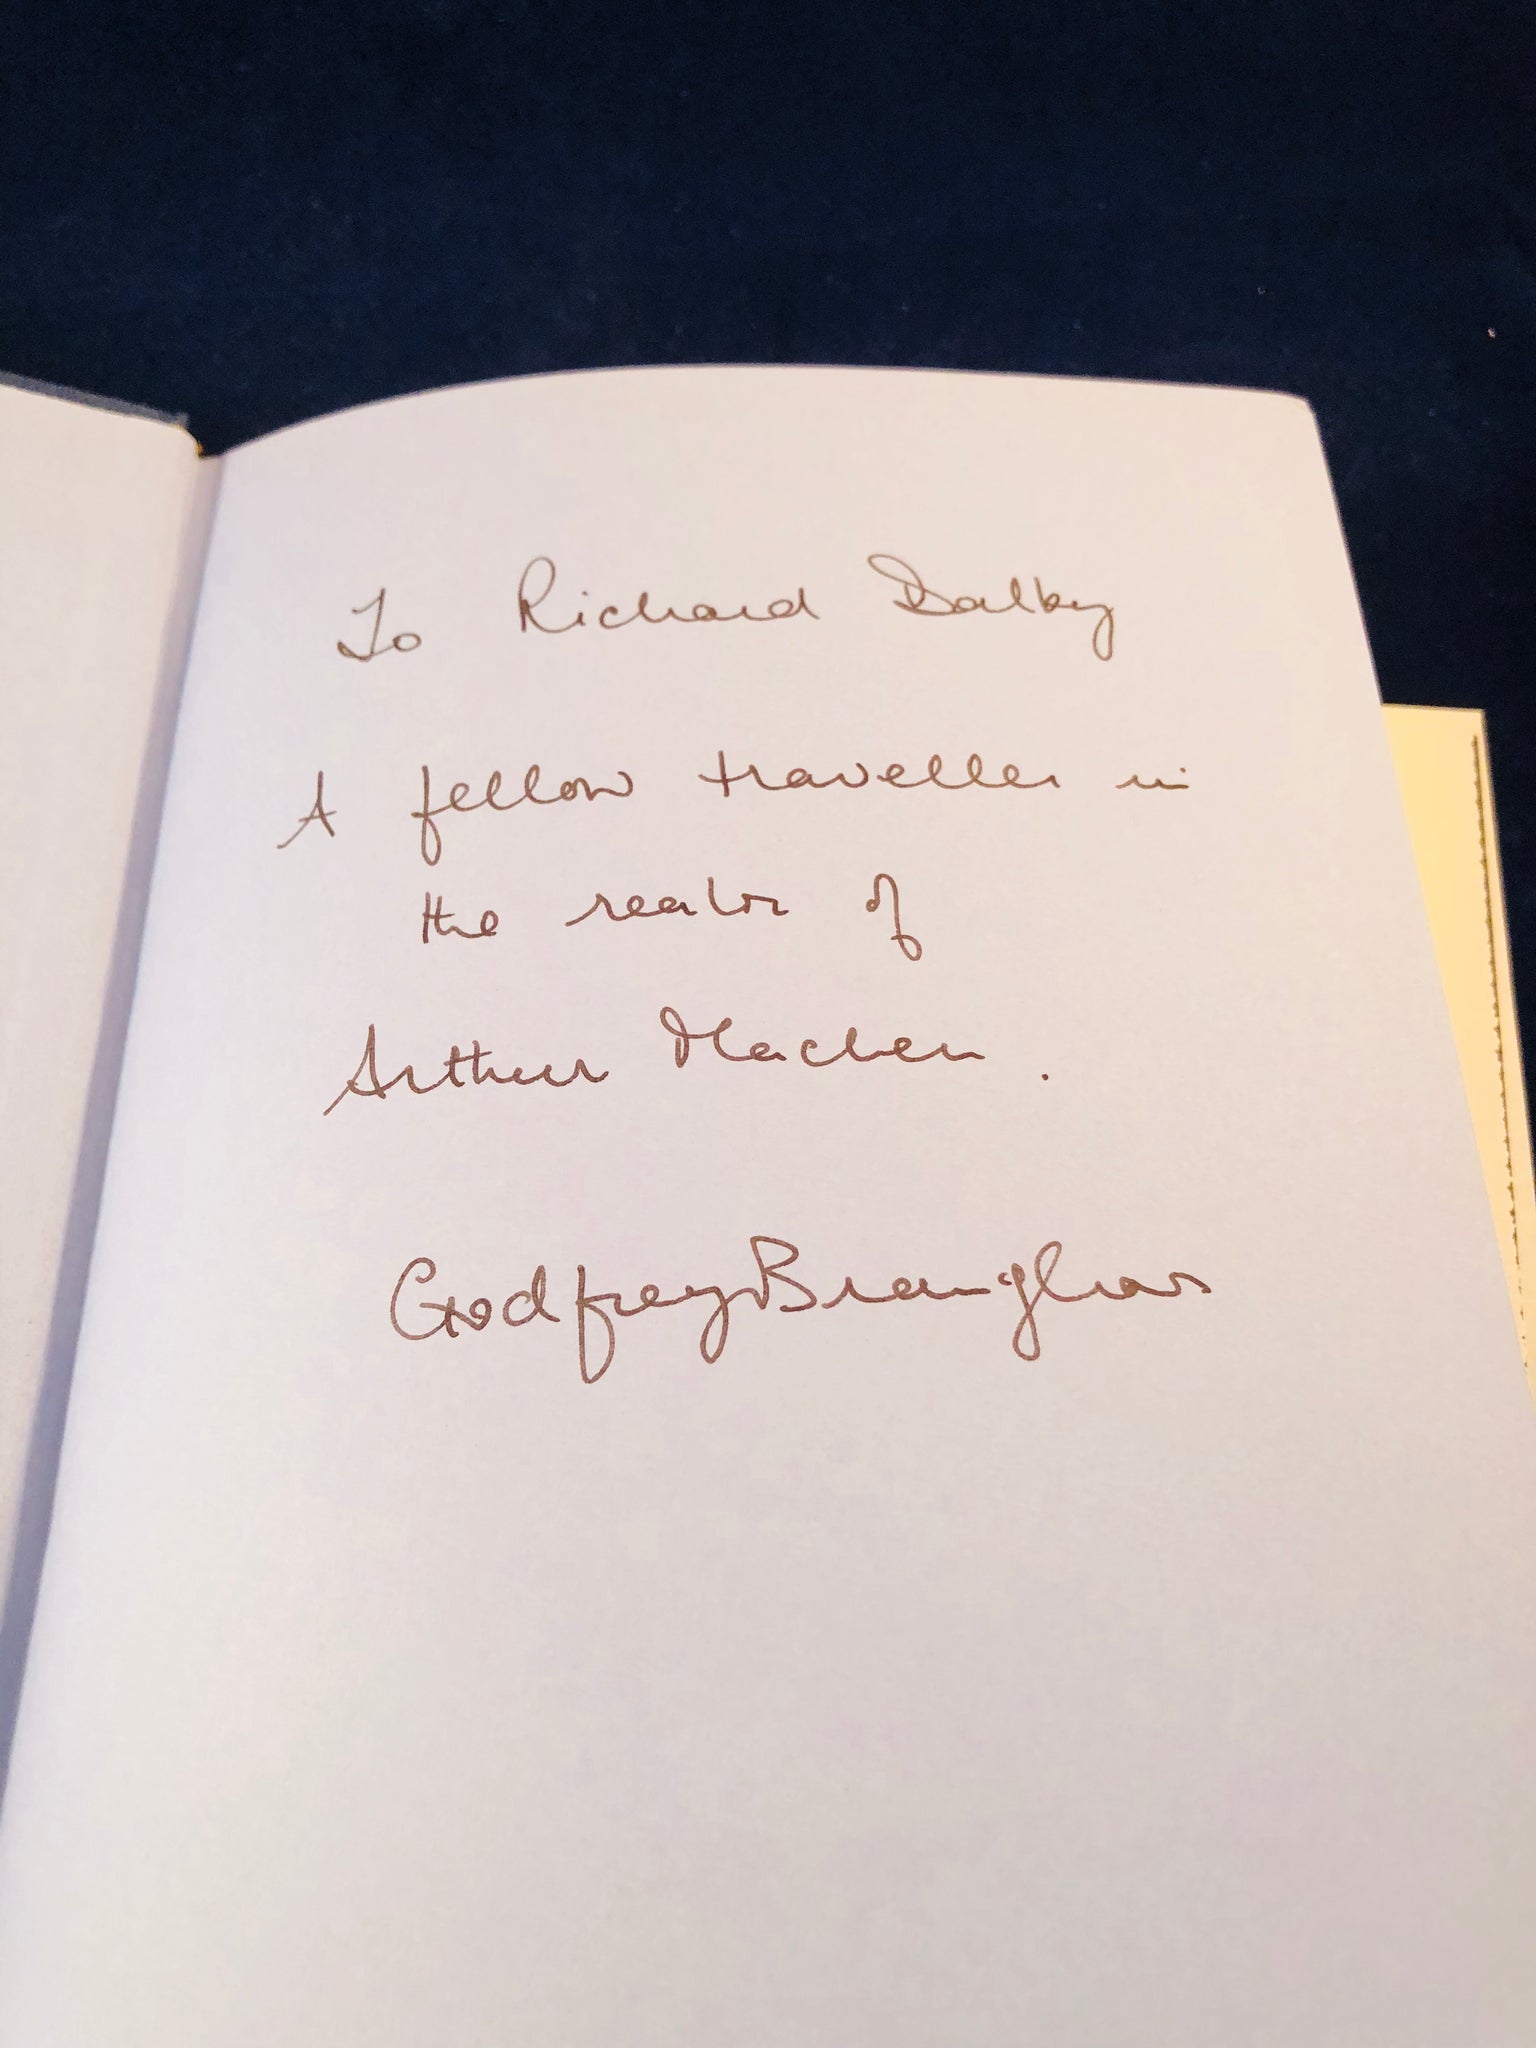 To Richard Dalby
A fellow traveller in
the realm of
Arthur Machen.
Godfrey Brangham